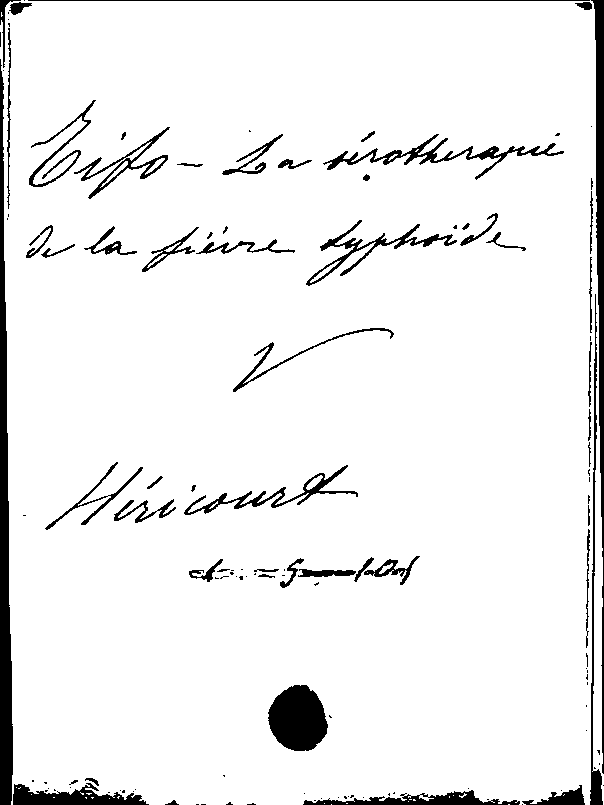 Tifo - La sérotherapie
de la fièvre typhoïde
V
Héricourt